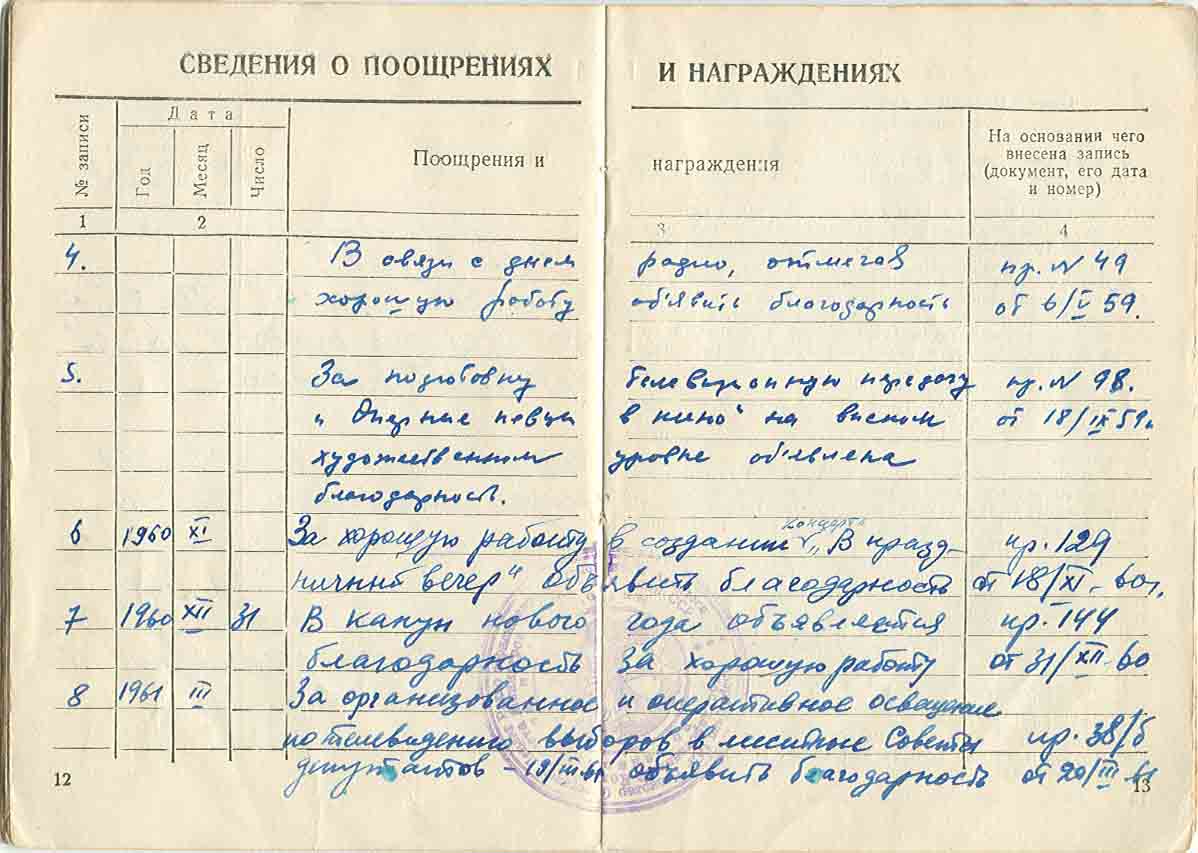 СВЕДЕНИЯ О ПООЩРЕНИЯХ И НАГРАЖДЕНИЯХ
№ записи
Дата
Год
Месяц
Число
Поощрения и награждения
На основании чего
внесена запись
(документ, его дата
и номер)
1 2 3 4
4. В связи с днем радио, отмечая пр. № 49
хорошую работу об'явить благодарность от 6/V 59.
5. За подготовку телевизионную передачу пр. № 98.
"Оперные певцы в кино" на высоком от 18/IX 59г.
художественном уровне об'явлена
благодарность.
концерта
6 1960 XI За хорошую работу в создании "В празд- пр. 129
ничный вечер" объявить благодарность от 18/XI-60г.
7 1960 XII 31 В канун нового года объявляется пр. 144
благодарность за хорошую работу от 31/XII-60
8 1961 III За организованное и оперативное освещение
по телевидению выборов в местные Советы пр. 38/б
депутатов - 19/III-61 объявить благодарность от 20/III 61
12 13